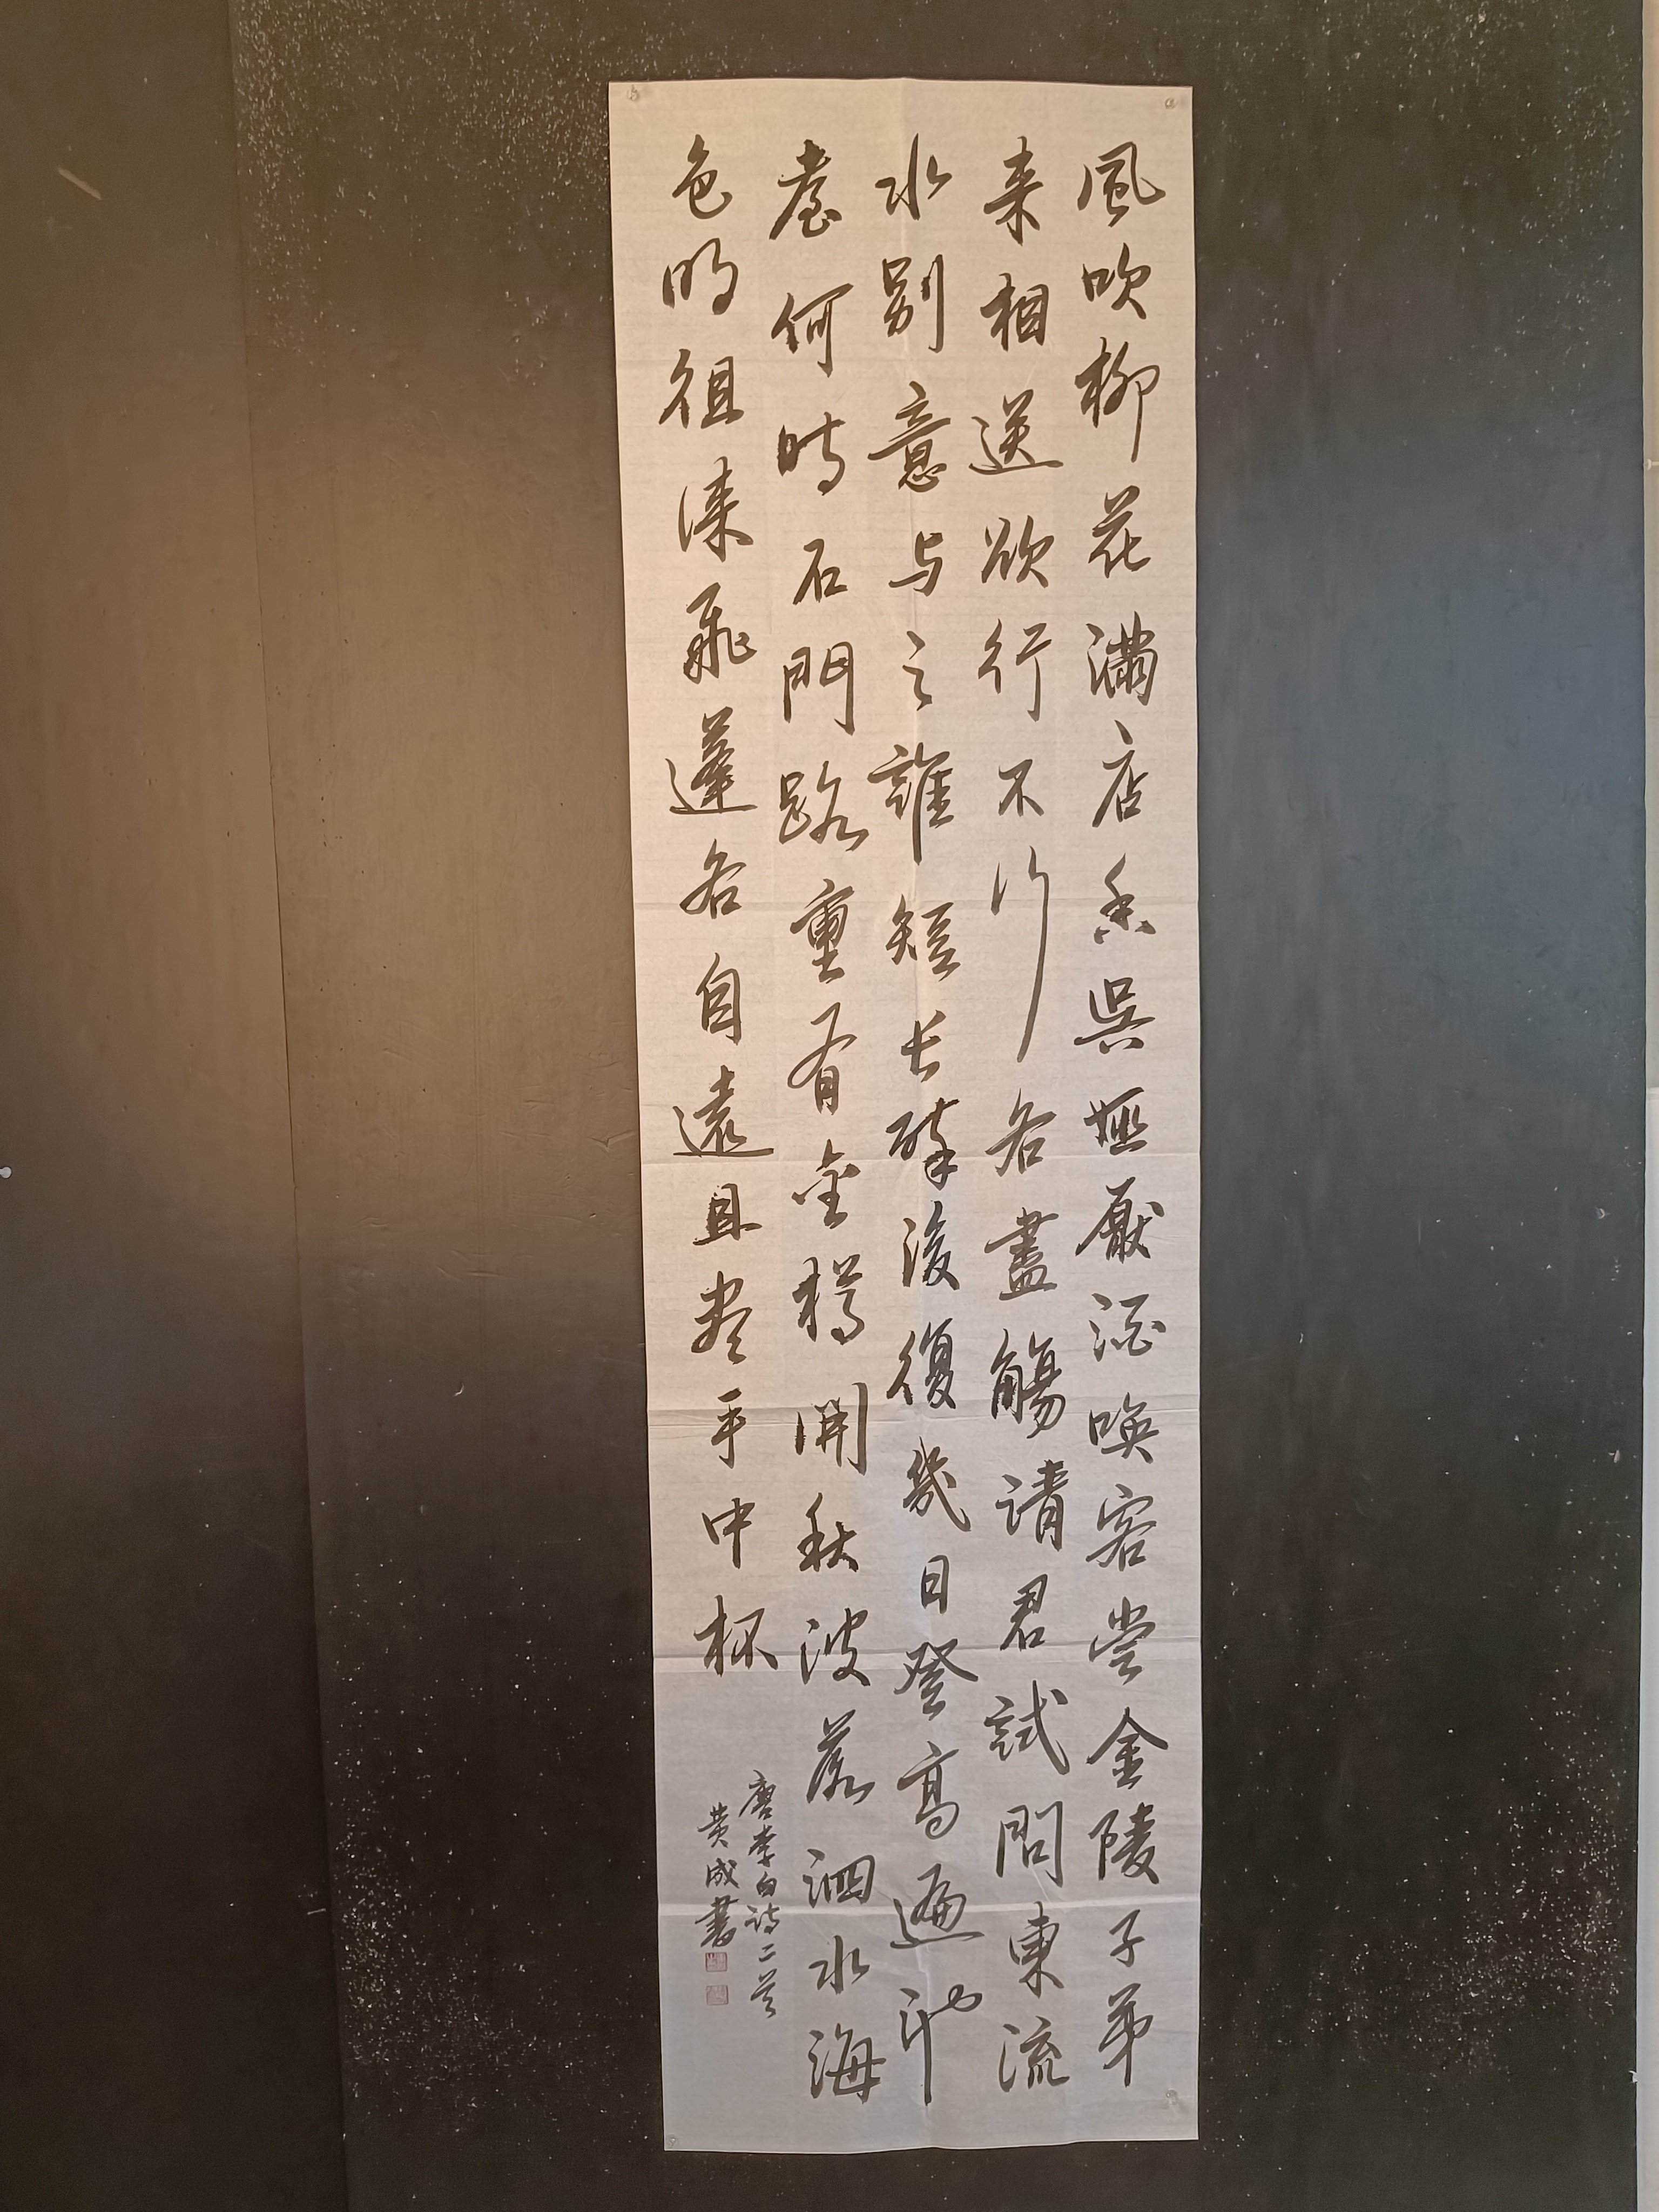 風吹柳花滿店香吳姬厭酒喚客嘗金陵子弟
来相送欲行不行各盡觴請君試問東流
水別意与之誰短长醉後復幾日登高遍池
臺何時石門路重有金樽開秋波落泗水海
色明徂徕飛蓬各自遠且尽手中杯
唐李白詩二首
黄成書